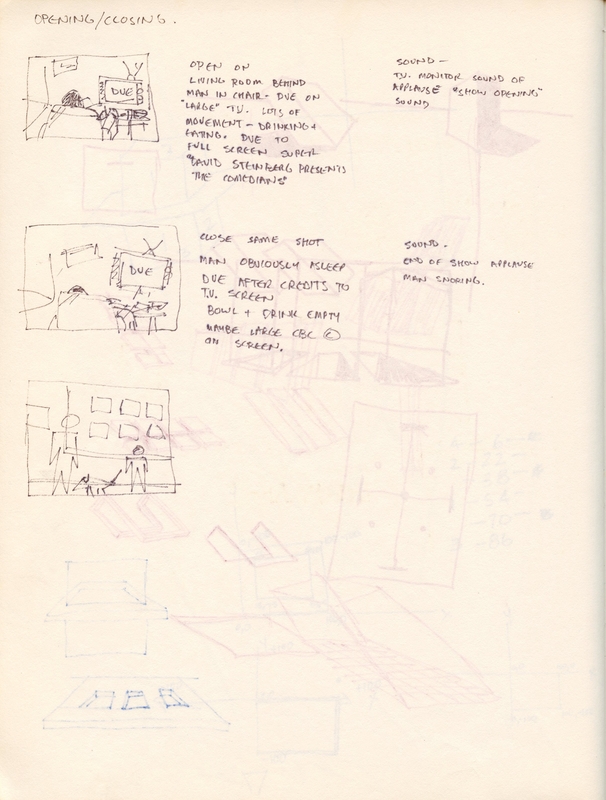 OPENING/CLOSING.
DUE
OPEN ON
LIVING ROOM BEHIND
MAN IN CHAIR - DUE ON
"LARGE" T.V. LOTS OF
MOVEMENT - DRINKING +
EATING. DUE TO
FULL SCREEN SUPER
"DAVID STEINBERG PRESENTS
"THE COMEDIANS"
SOUND -
T.V. MONITOR SOUND OF
APPLAUSE "SHOW OPENING"
SOUND
DUE
CLOSE SAME SHOT
MAN OBVIOUSLY ASLEEP
DUE AFTER CREDITS TO
T.V. SCREEN
BOWL + DRINK EMPTY
MAYBE LARGE CBC ©
ON SCREEN.
SOUND.
END OF SHOW APPLAUSE
MAN SNORING.